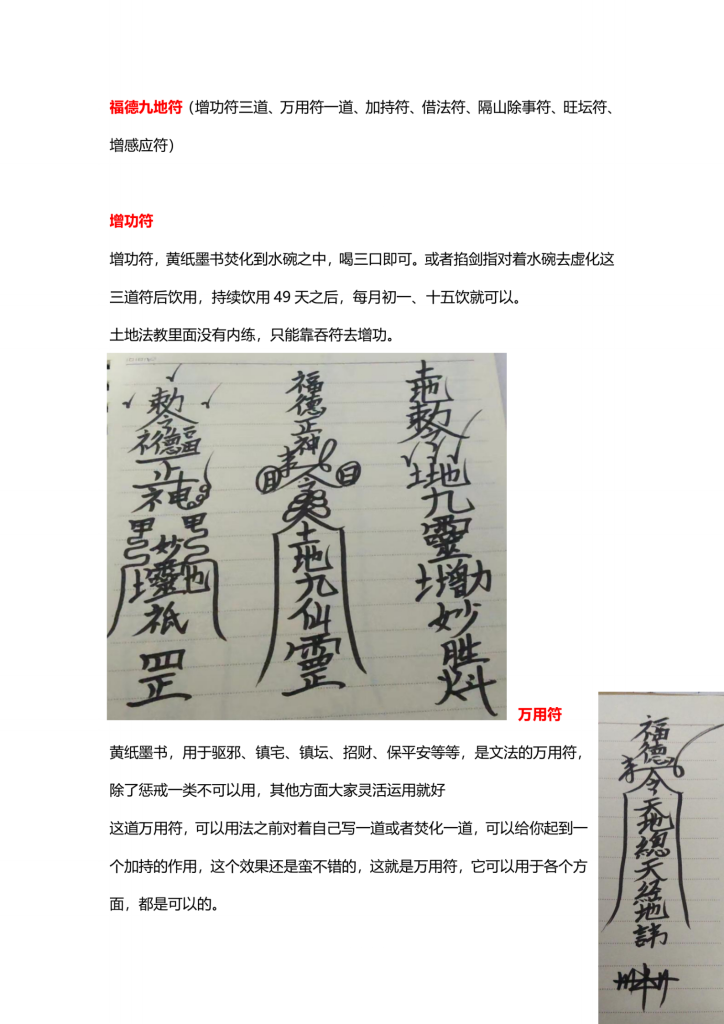 福德九地符（增功符三道、万用符一道、加持符、借法符、隔山除事符、旺坛符、
增感应符）
增功符
增功符，黄纸墨书焚化到水碗之中，喝三口即可。或者掐剑指对着水碗去虚化这
三道符后饮用，持续饮用 49 天之后，每月初一、十五饮就可以。
土地法教里面没有内练，只能靠吞符去增功。
福德正神
土地九仙靈
万用符
黄纸墨书，用于驱邪、镇宅、镇坛、招财、保平安等等，是文法的万用符，
除了惩戒一类不可以用，其他方面大家灵活运用就好
这道万用符，可以用法之前对着自己写一道或者焚化一道，可以给你起到一
个加持的作用，这个效果还是蛮不错的，这就是万用符，它可以用于各个方
面，都是可以的。
福德
天地總天经地諱